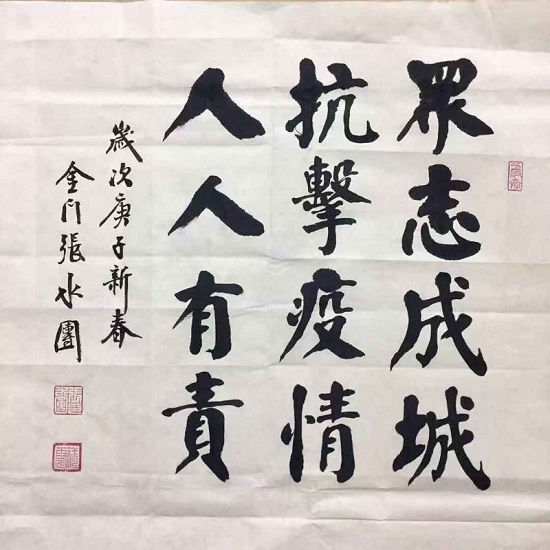 眾志成城
抗擊疫情
人人有責
歲次庚子新春
金门張水團